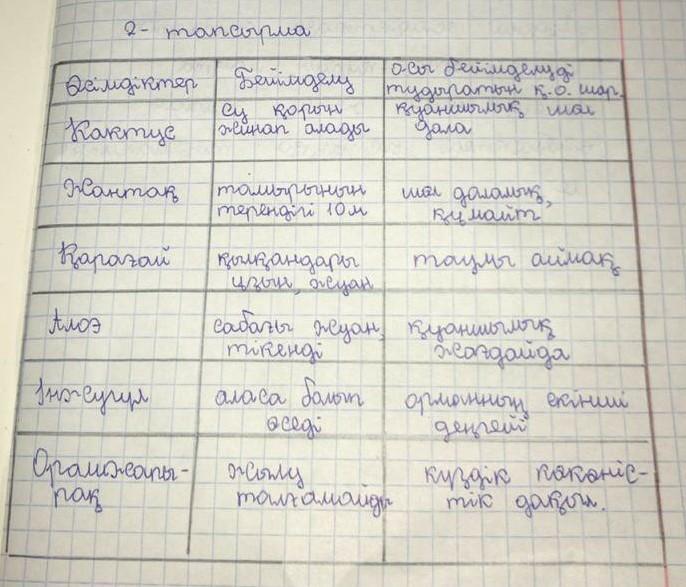 2- тапсырма
Өсімдіктер
Бейімделу
осы бейімделуді
тудыратын қ.о. шар.
Кактус
су қорын
жинап алады
қуаңшылық шөл
дала
Жантақ
тамырының
тереңдігі 10м
шөл далалық,
құмайт
Қарағай
қылқандары
ұзын, жуан
таулы аймақ
Алоэ
сабағы жуан,
тікенді
қуаңшылық
жағдайда
Інжугүл
аласа болып
өседі
орманның екінші
деңгейі
Орамжапы-
рақ
жылу
талғамайды
күздік көкөніс-
тік дақыл.